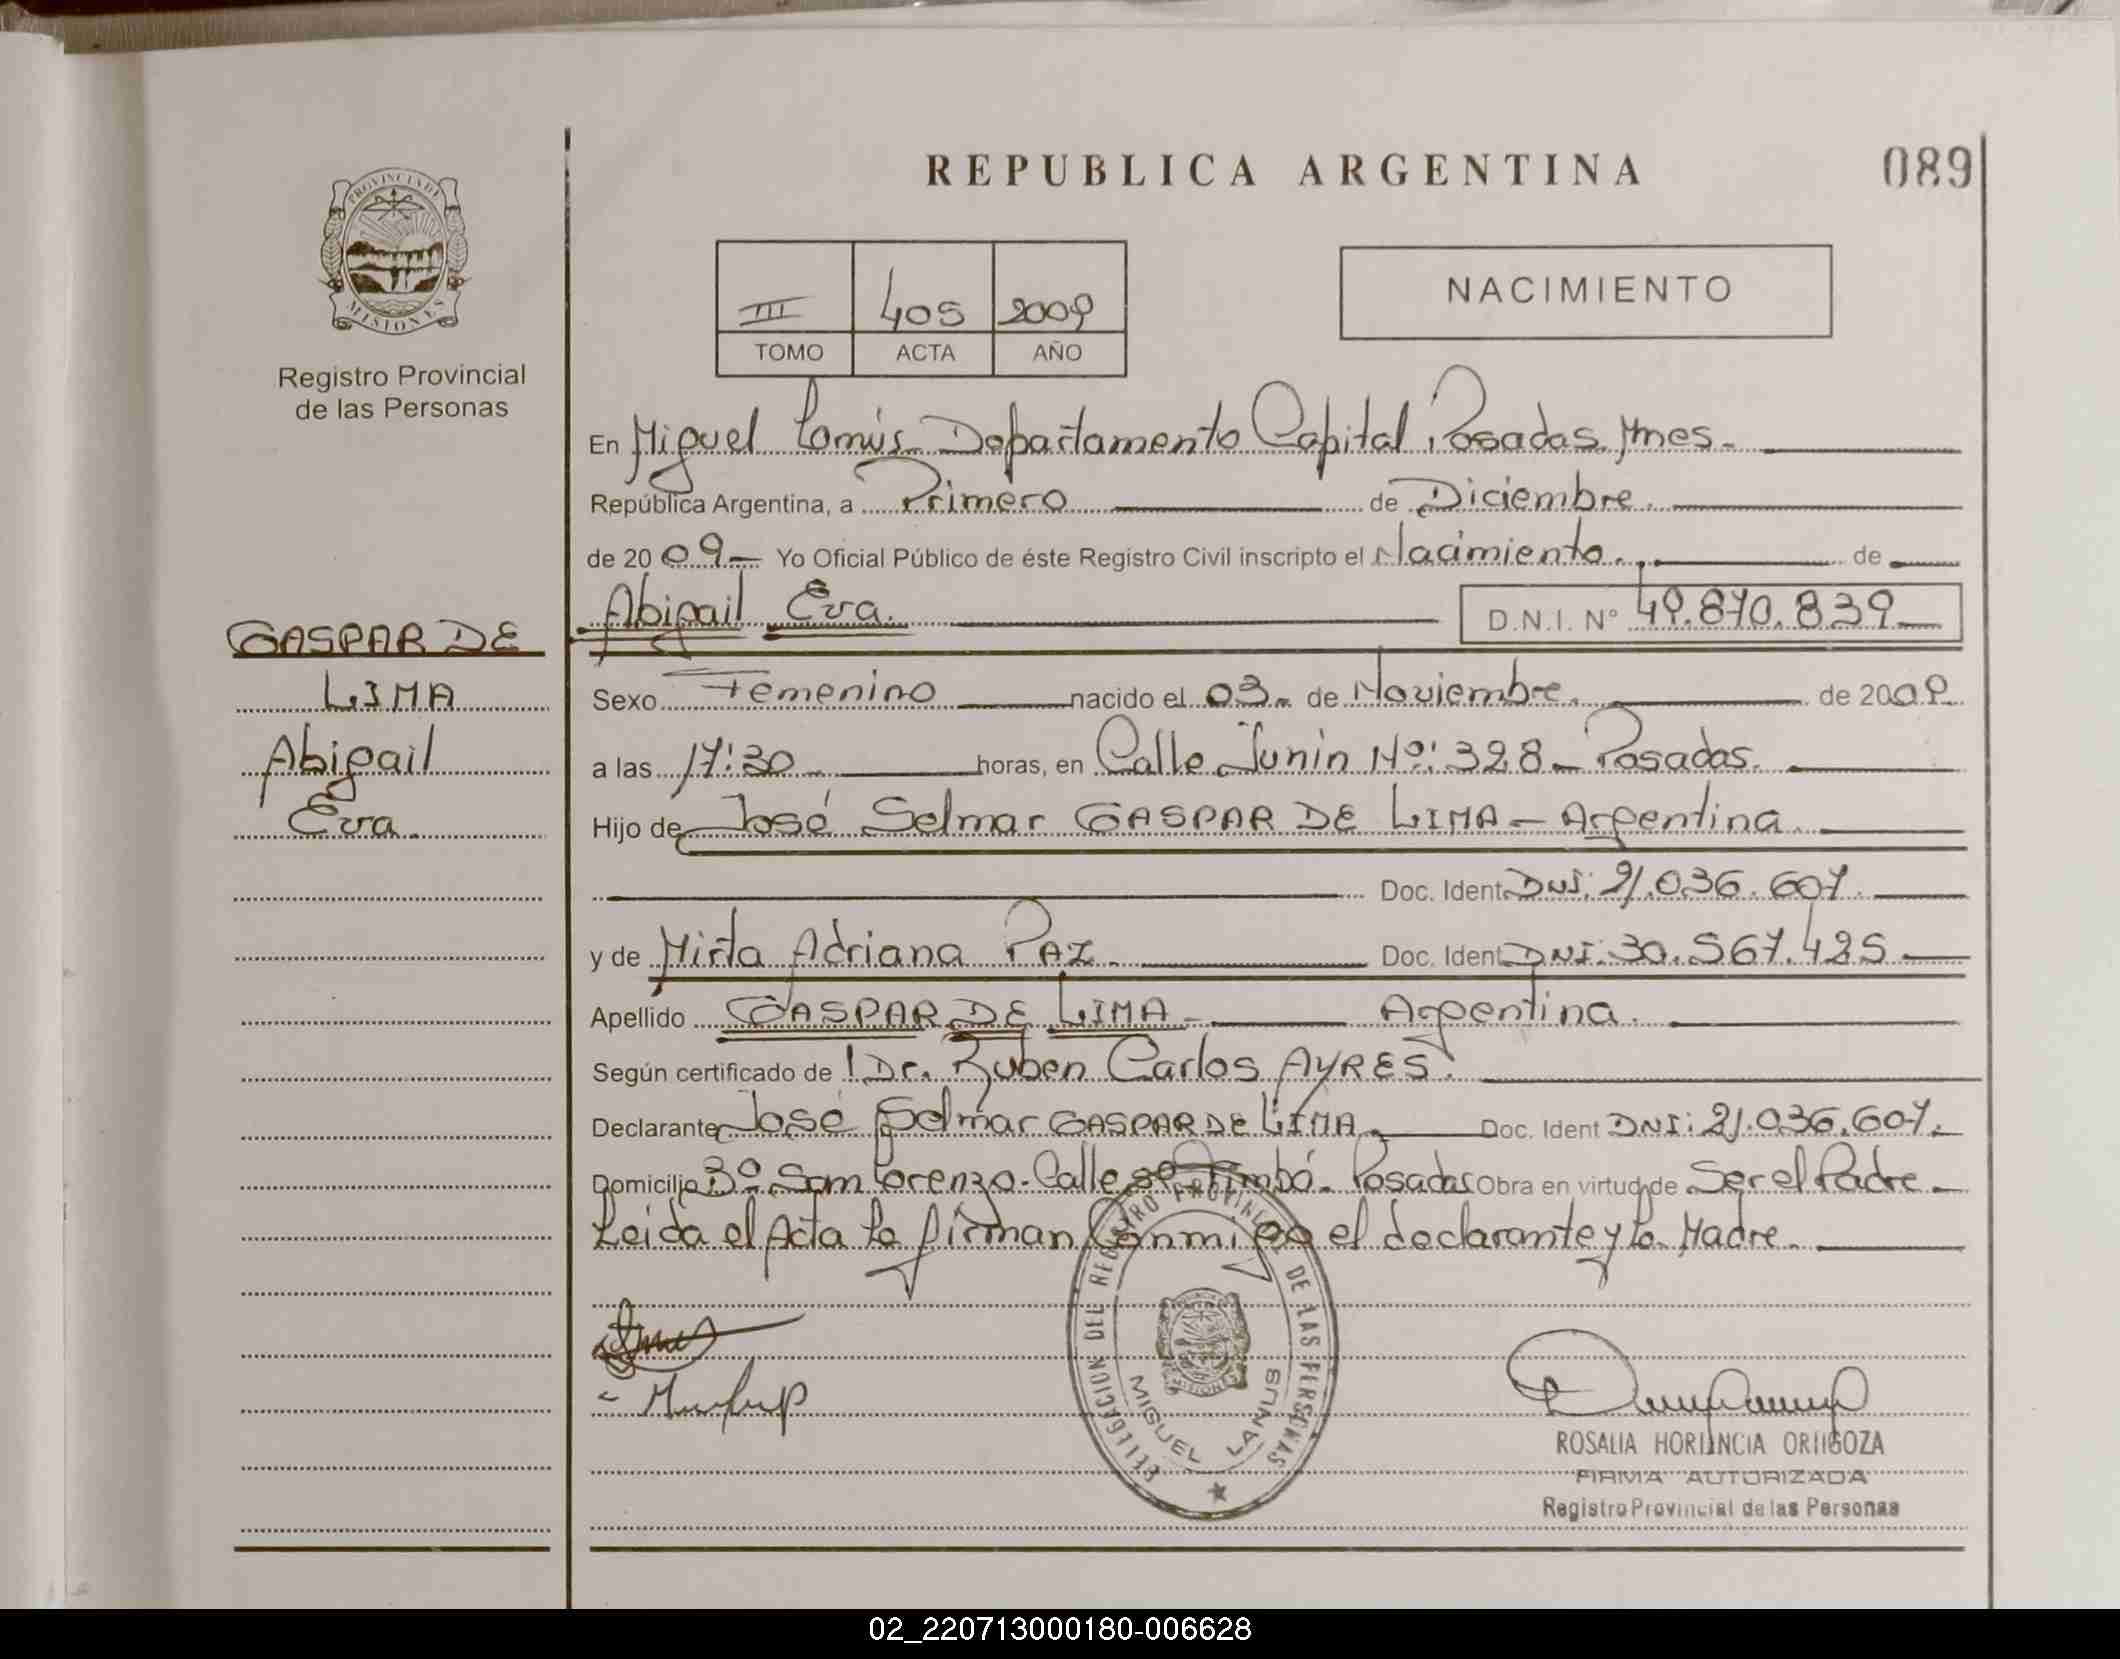 REPUBLICA ARGENTINA
089
PROVINCIA DE
MISIONES
Registro Provincial
de las Personas
III 405 2009
TOMO ACTA AÑO
NACIMIENTO
En Miguel Lanús Departamento Capital, Posadas. Mnes.
República Argentina, a Primero de Diciembre.
de 20 09 Yo Oficial Público de éste Registro Civil inscripto el Nacimiento. de
Abigail Eva. D.N.I. Nº 49.870.839
GASPAR DE
LIMA
Abigail
Eva.
Sexo Femenino nacido el 03 de Noviembre. de 2009
a las 17:30 horas, en Calle Junin Nº: 328 - Posadas.
Hijo de José Selmar GASPAR DE LIMA - Argentina
Doc. Ident DNI: 21.036.607.
y de Mirta Adriana PAZ Doc. Ident DNI: 30.567.425
Apellido GASPAR DE LIMA - Argentina.
Según certificado de Dr. Ruben Carlos AYRES.
Declarante José Selmar GASPAR DE LIMA. Doc. Ident DNI: 21.036.607.
Domicilio Bº San Lorenzo - Calle Timbó - Posadas Obra en virtud de Ser el Padre
Leida el Acta la firman Conmigo el declarante y la Madre.
DELEGACION DEL REGISTRO PROVINCIAL DE LAS PERSONAS
MIGUEL LANUS
ROSALIA HORTENCIA ORTIGOZA
FIRMA AUTORIZADA
Registro Provincial de las Personas
02_220713000180-006628